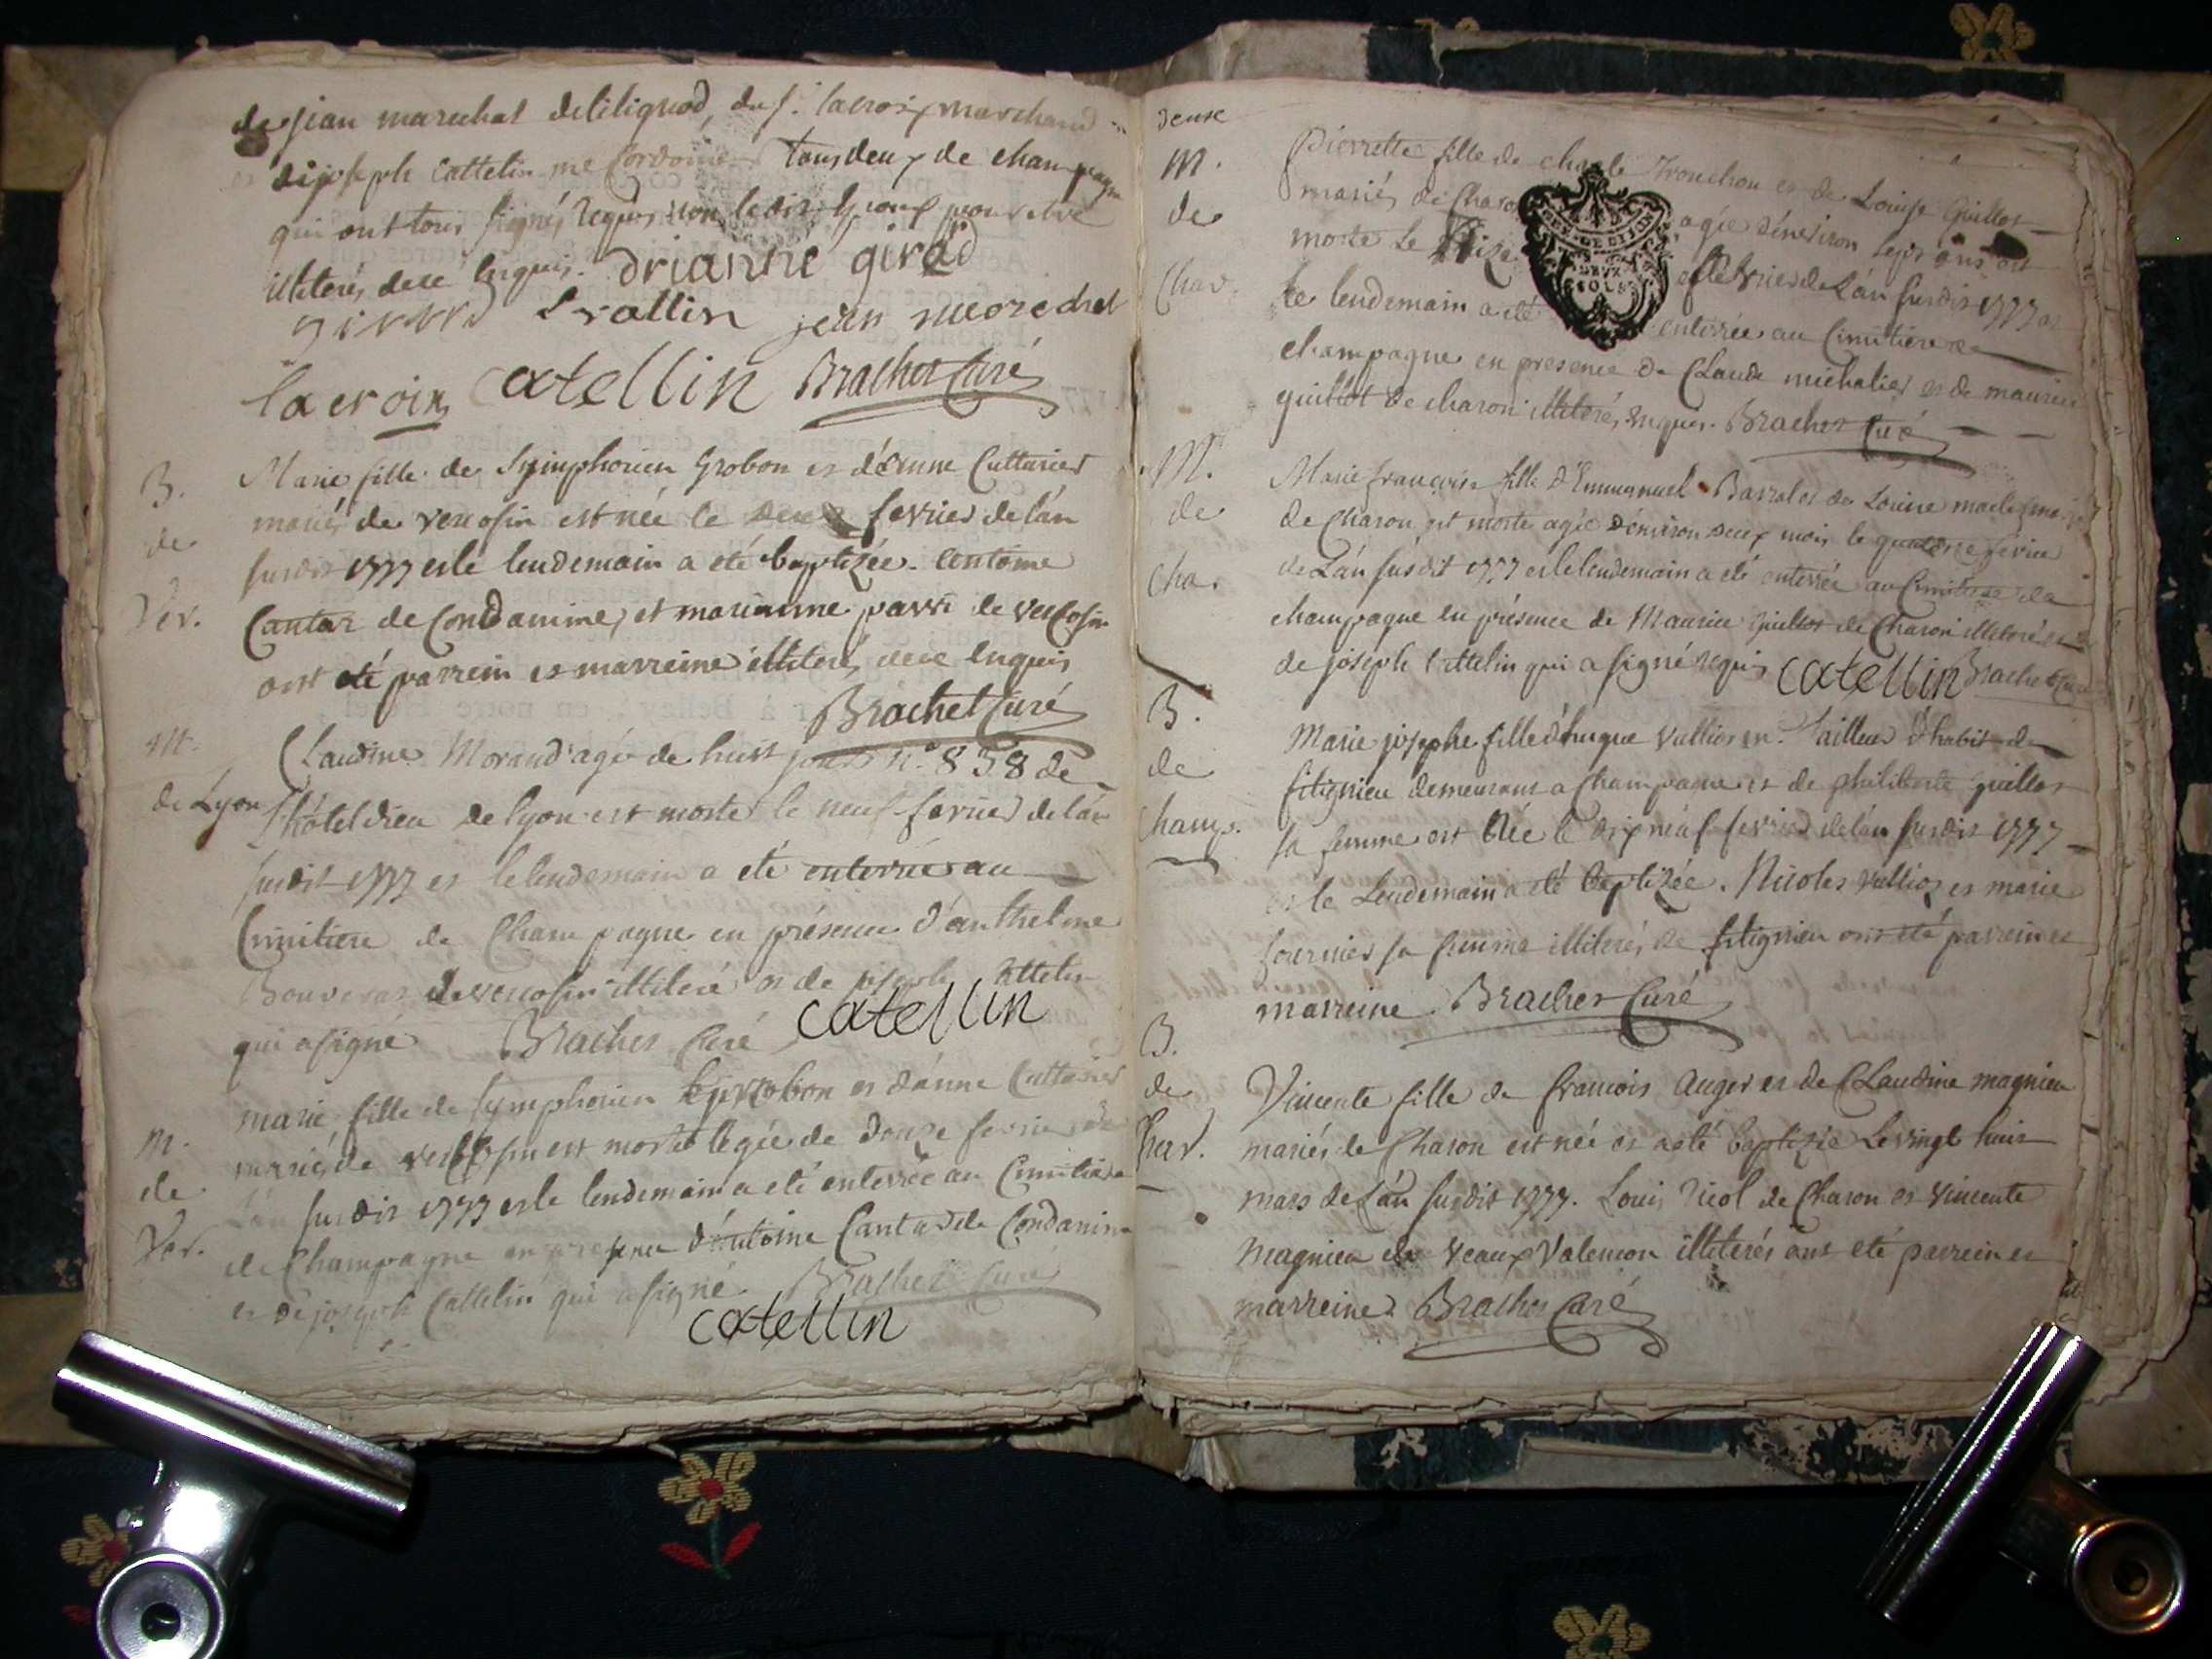 de jean marechal de liliquod, du s.r lacroix marchand
de joseph Cattelin me Cordonnier tous deux de champagne
qui ont tous signés requis, non ledit
illiterés de ce enquis. drianne girad
girard Drallin jean marechal
lacroix Catellin Brachet Curé
B. Marie fille de Symphorien Grobon et d'anne Cuttarier
de mariés de vercosin est née le deux fevrier de l'an
susdit 1777 et le lendemain a eté baptizée. antoine
Ver. Cantar de Condamine, et marianne parri de vercosin
ont eté parrein et marreine illiterés de ce enquis
Brachet Curé
M. Claudine Morand agée de huit jours n.° 858 de
de Lyon l'hôteldieu de lyon est morte le neuf fevrier de l'an
susdit 1777 et le lendemain a eté enterrée au
Cimitiere de Champagne en présence d'anthelme
Bouveras de vercosin illiteré et de joseph Cattelin
qui a signé Brachet Curé Catellin
marie fille de symphorien grobon et d'anne Cuttarier
M. mariés de vercosin est morte le douze fevrier de
de l'an susdit 1777 et le lendemain a eté enterrée au Cimitiere
Ver. de Champagne en presence d'antoine Cantar de Condamine
et de joseph Cattelin qui a signé. Brachet Curé
Catellin
deux
M. Pierrette fille de charle Tronchon et de Louise Guillot
de mariés de Charon agée d'environ sept ans est
morte le treize fevrier de L'an susdit 1777 et
Char. le lendemain a eté enterrée au Cimitiere de
champagne en presence de Claude michalier et de maurice
guillot de charon illiterés enquis. Brachet Curé
M. Marie françoise fille d'Emmanuel Barral et de Louise
de de Charon est morte agée d'environ deux mois le quatorze fevrier
de L'an susdit 1777 et le lendemain a eté enterrée au Cimitiere de
Cha. champagne en présence de Maurice guillot de Charon illiteré et
de joseph Cattelin qui a signé requis Catellin Brachet Curé
B. Marie josephe fille d'hugue Vullioz m.e Tailleur d'habit de
de fitignieu demeurant a Champagne et de philiberte guillot
Champ. sa femme est Née le dix neuf fevrier de l'an susdit 1777
et le Lendemain a eté baptizée. Nicolas Vullioz et marie
fournier sa femme illiterés de fitignieu ont eté parrein et
marreine Brachet Curé
B.
de Vincente fille de francois Auger et de Claudine magnieu
Char. mariés de Charon est née et a eté baptizée Le vingt huit
mars de L'an susdit 1777. Louis Nicol de Charon et Vincente
Magnieu de Veaux Valencon illiterés ont eté parrein et
marreine. Brachet Curé